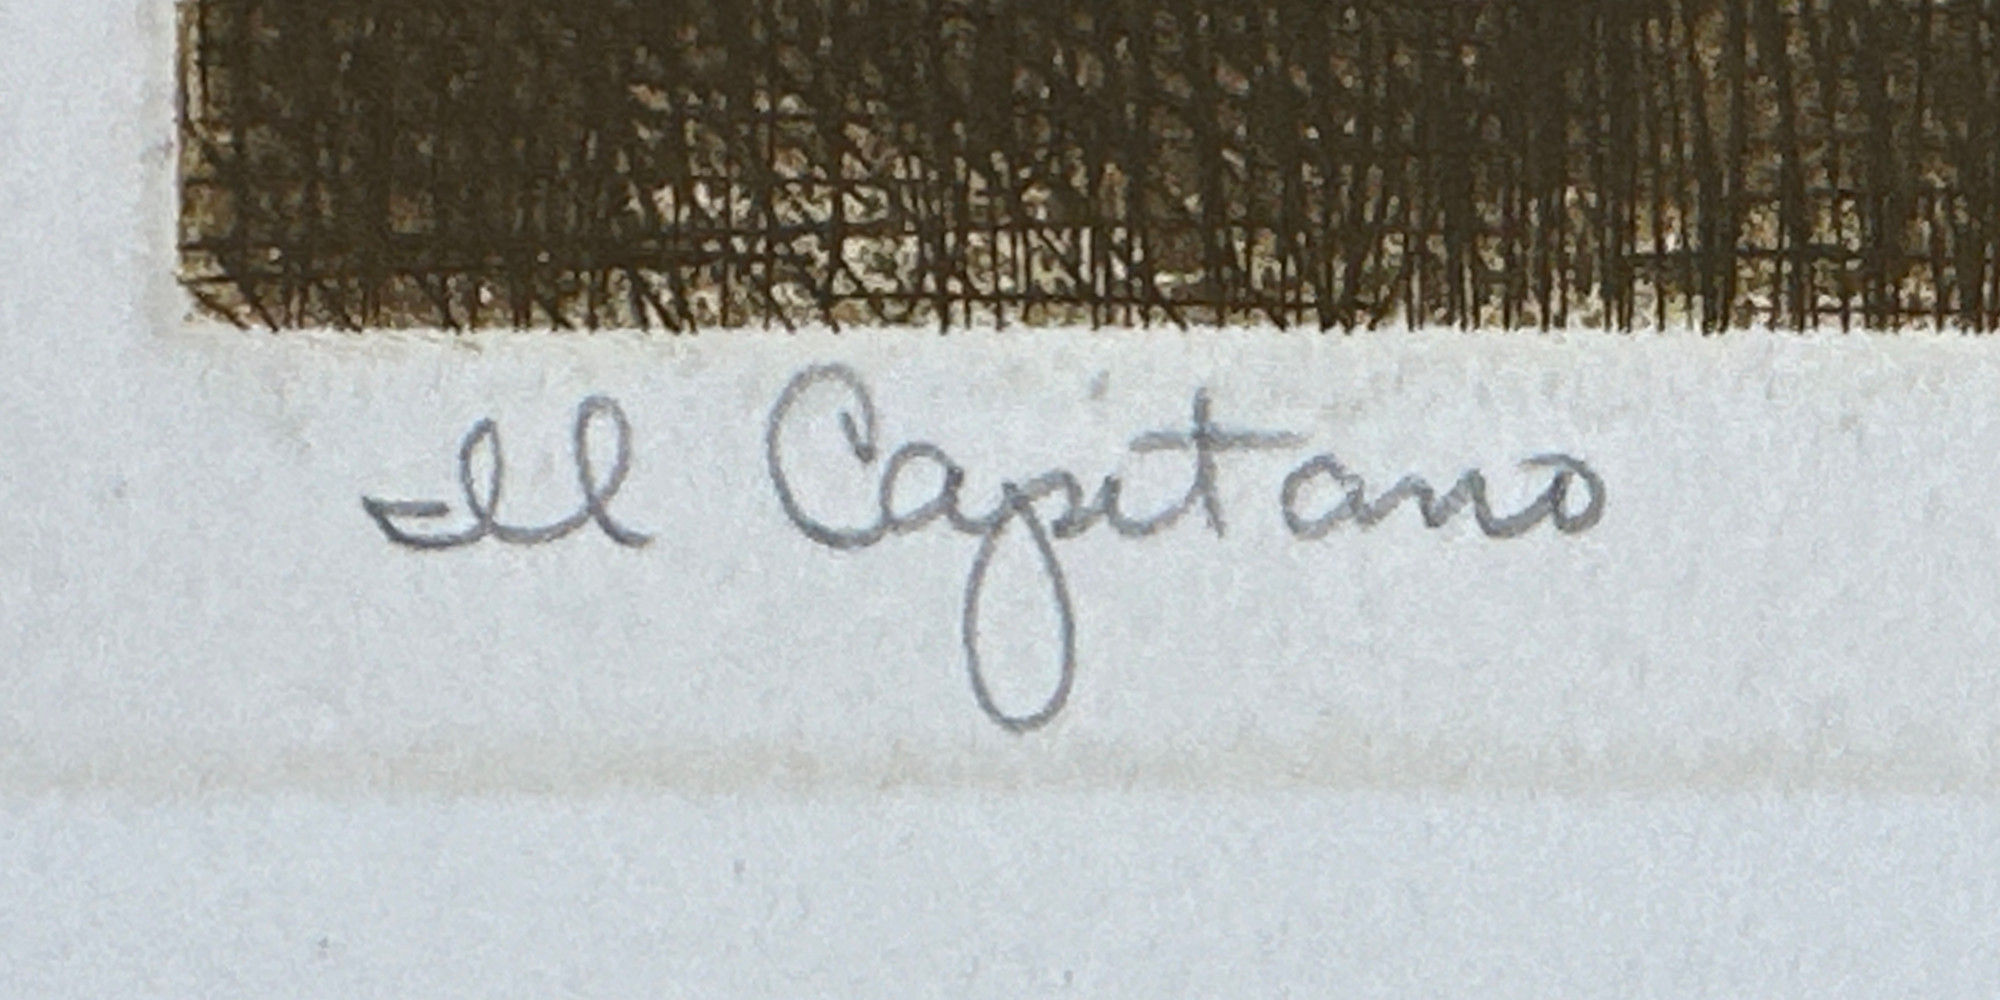 Il Capitano